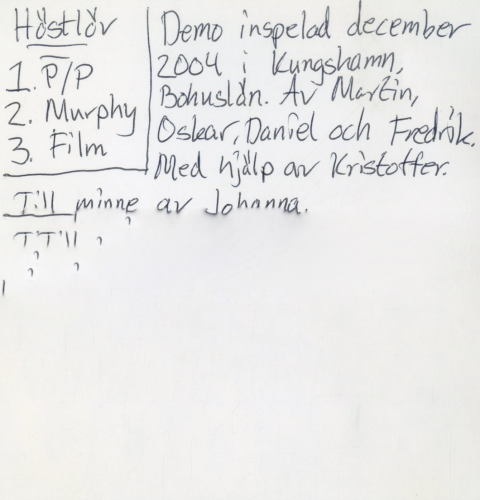 Höstlöv
1. P/P
2. Murphy
3. Film
Demo inspelad december
2004 i Kungshamn,
Bohuslän. Av Martin,
Oskar, Daniel och Fredrik.
Med hjälp av Kristoffer.
Till minne av Johanna.